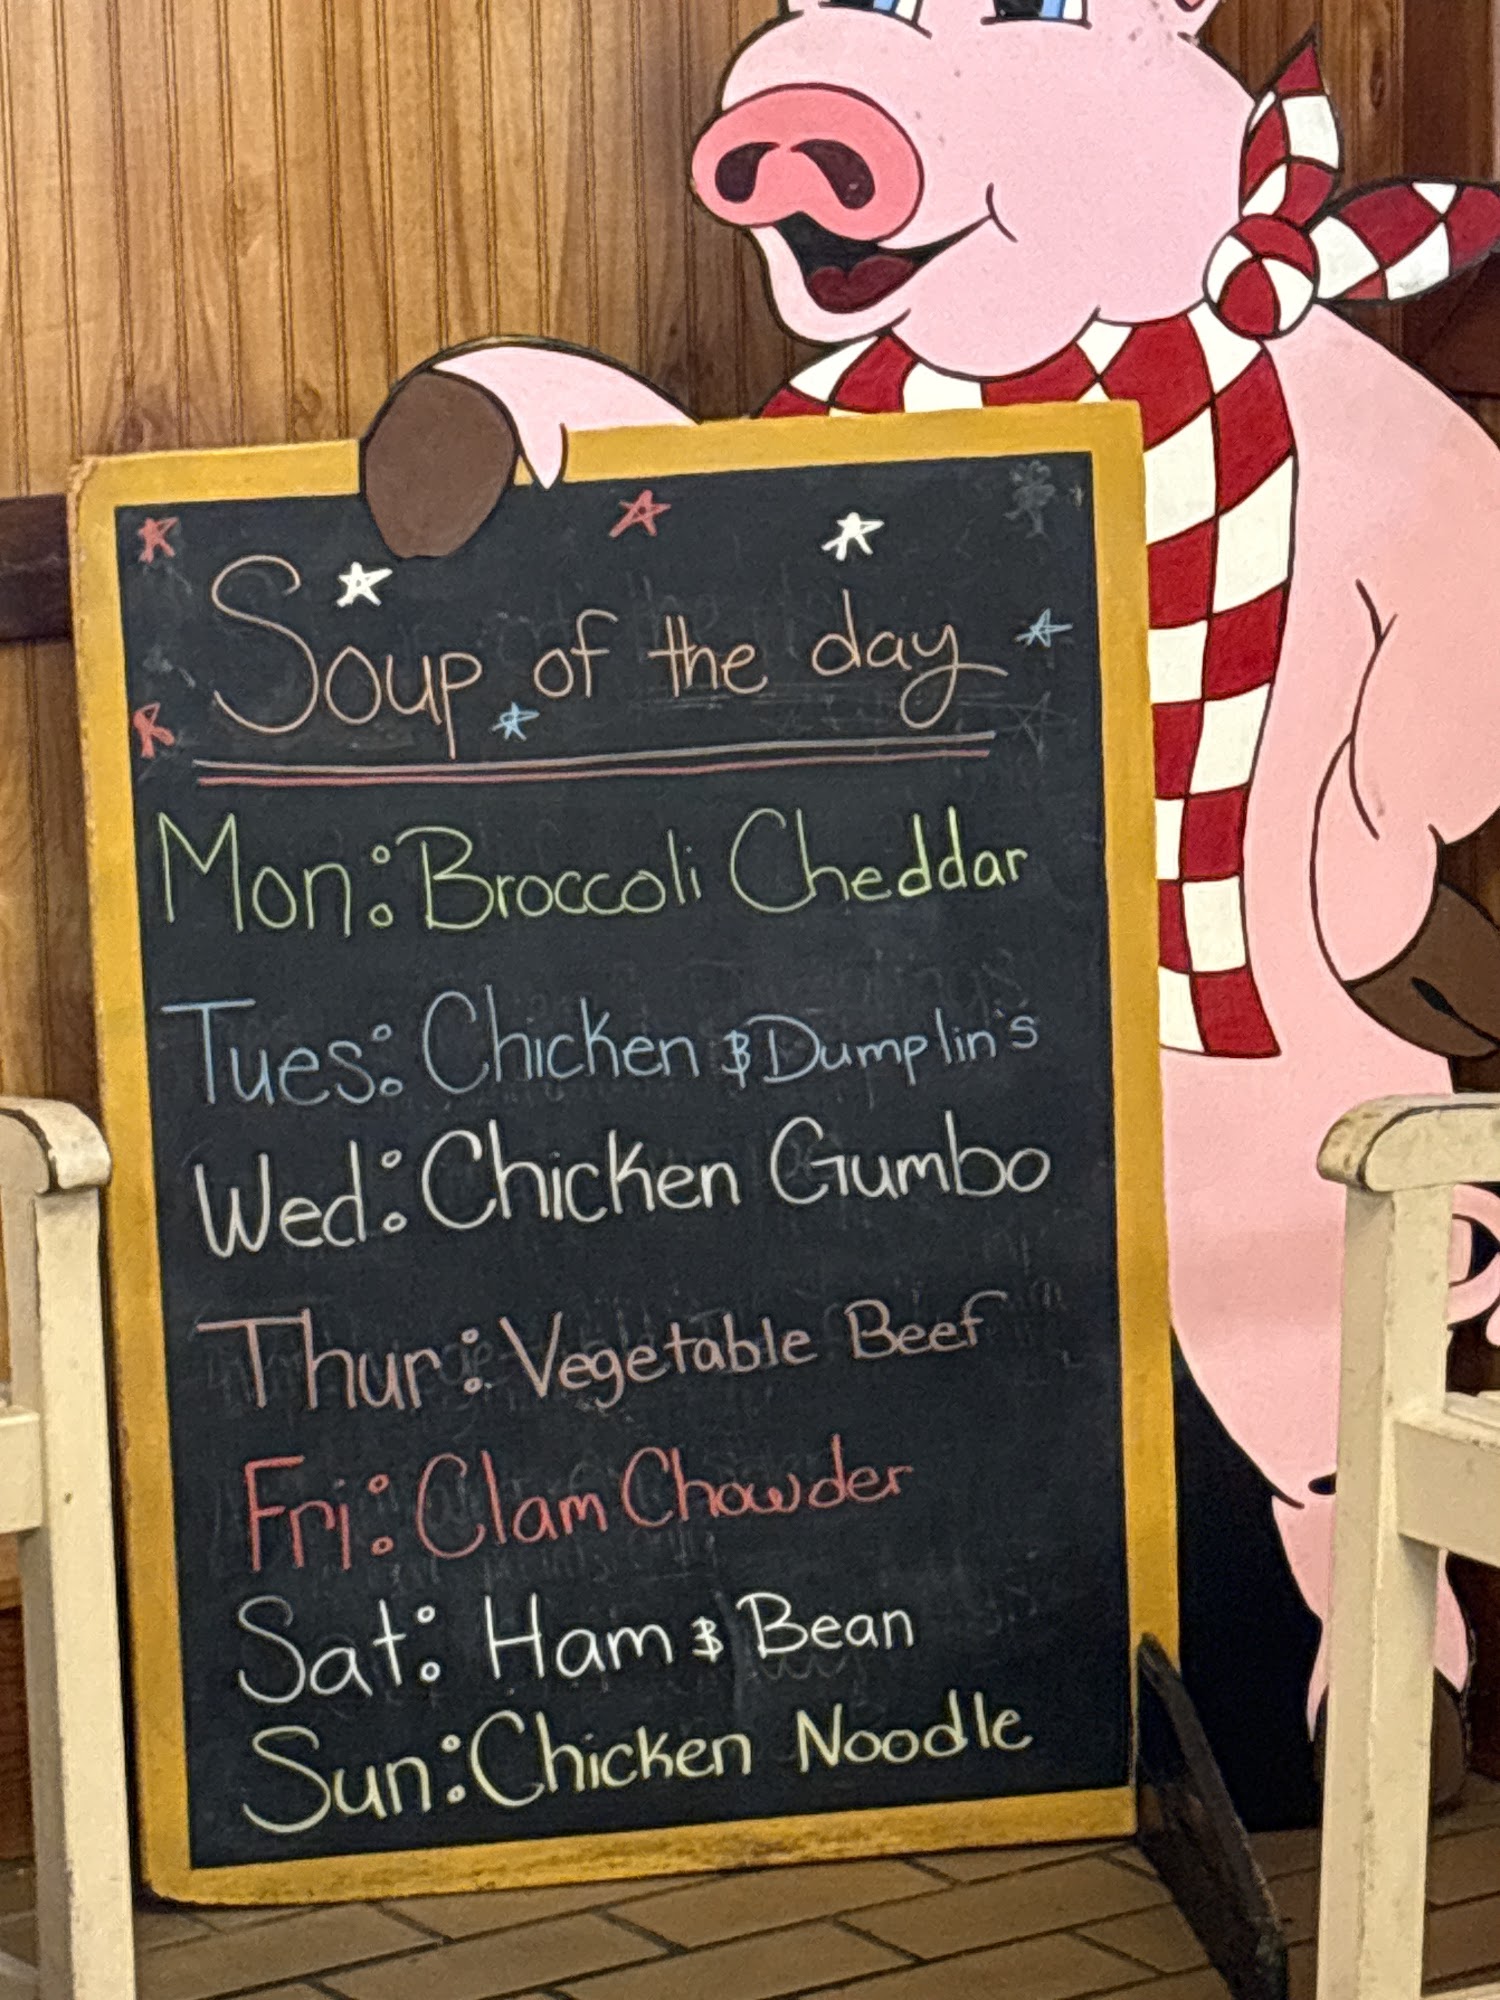 Soup of the day
Mon: Broccoli Cheddar
Tues: Chicken & Dumplin's
Wed: Chicken Gumbo
Thur: Vegetable Beef
Fri: Clam Chowder
Sat: Ham & Bean
Sun: Chicken Noodle